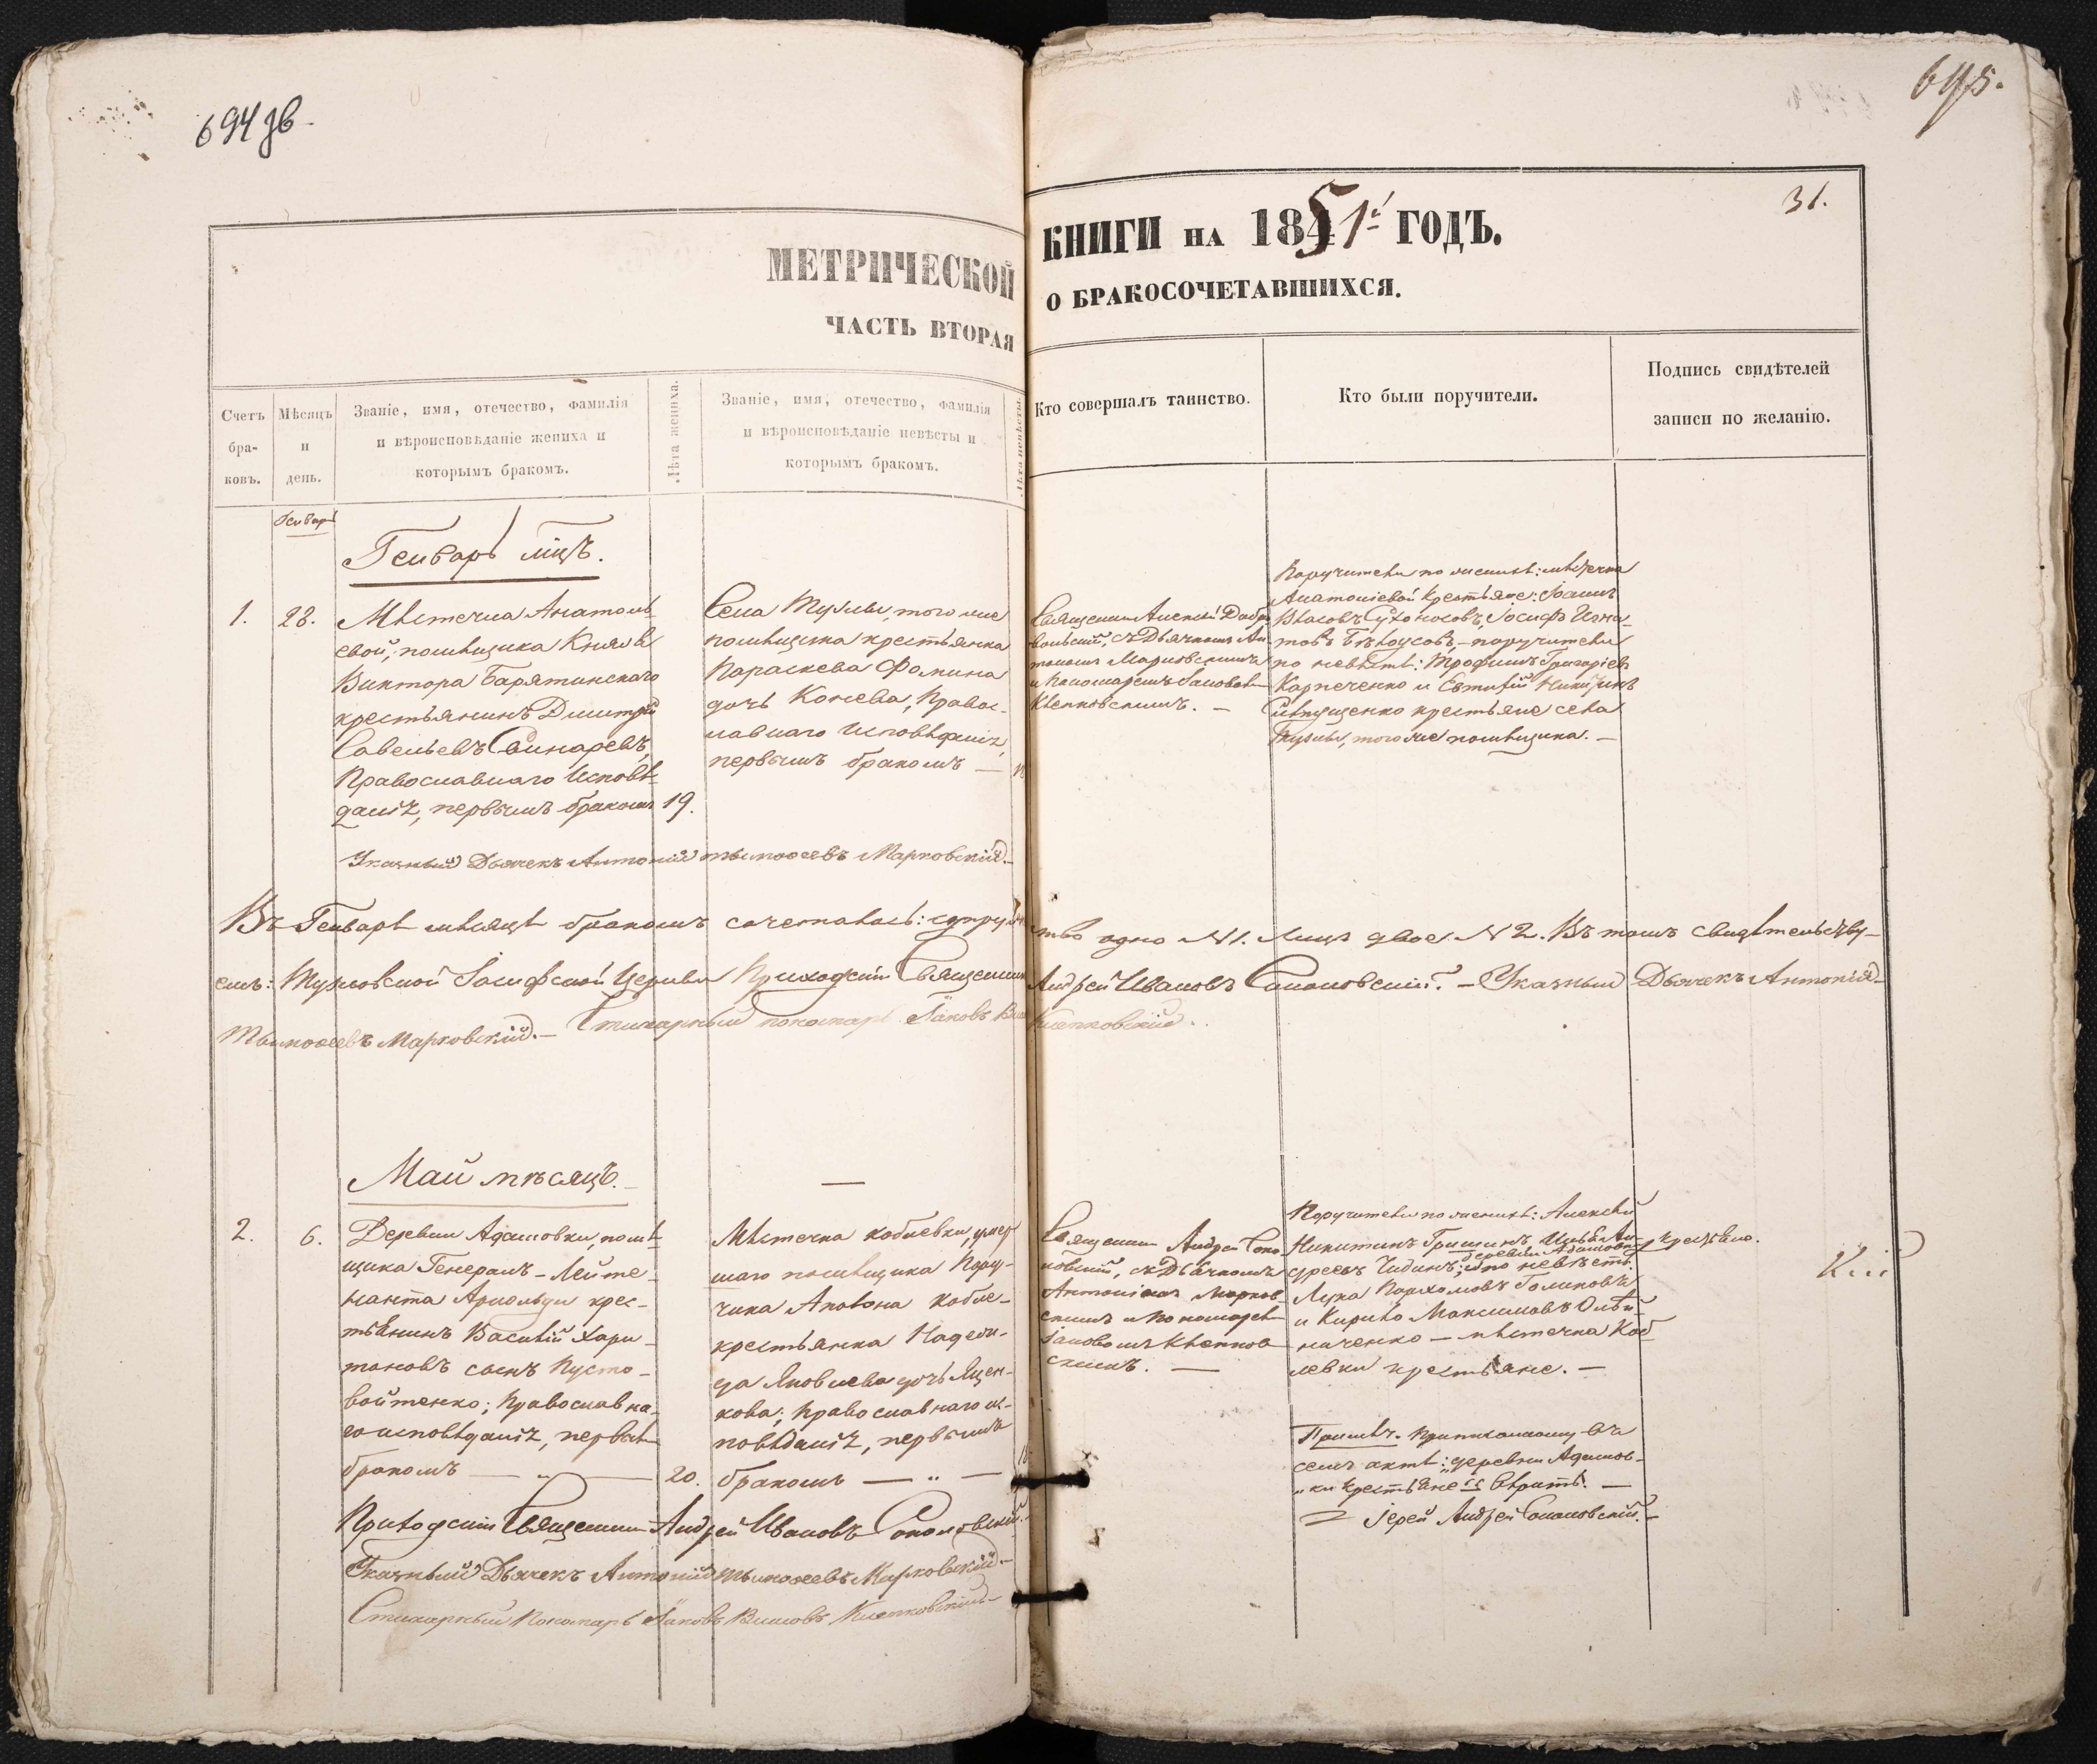 694 зв.
695.
31.
МЕТРИЧЕСКОЙ
КНИГИ НА 1851й ГОДЪ.
ЧАСТЬ ВТОРАЯ
О БРАКОСОЧЕТАВШИХСЯ.
Счетъ
бра-
ковъ.
Мѣсяцъ
и
день.
Званіе, имя, отечество, фамилія
и вѣроисповѣданіе жениха и
которымъ бракомъ.
Лѣта жениха.
Званіе, имя, отечество, фамилія
и вѣроисповѣданіе невѣсты и
которымъ бракомъ.
Лѣта невѣсты.
Кто совершалъ таинство.
Кто были поручители.
Подпись свидѣтелей
записи по желанію.
Генварь
Генварь мцъ.
1.
28.
Мѣстечка Анатоль
евой, помѣщика Князя
Виктора Барятинскаго
крестьянинъ Димитрій
Савельевъ
Православнаго Исповѣ-
данія, первымъ бракомъ
19.
Села Тузлы, того же
помѣщика крестьянка
Параскева Фомина
дочь Конева, Правос-
лавнаго Исповѣданія,
первымъ бракомъ —
Священникъ Алексій Добро
вольскій, съ Дьячкомъ Ан-
тоніемъ Марковскимъ
и Пономаремъ Іаковомъ
Клепковскимъ. —
Поручители по женихѣ: мѣстечка
Анатоліевой Крестьяне: Іоаннъ
Власовъ Сухоносовъ, Іосифъ Игна-
товъ Бѣлоусовъ, — поручители
по невѣстѣ: Трофимъ Григоріевъ
Карпеченко и Евтихій Никитинъ
крестьяне села
Тузлы, того же помѣщика. —
Указный Дьячекъ Антоній Тимофеевъ Марковскій.
Въ Генварѣ мѣсяцѣ бракомъ сочеталось: супружество одно №1. Лицъ двое. №2. Въ томъ свидѣтельству-
емъ: Тузловской Іосифской Церкви Приходскій Священникъ Андрей Ивановъ Соколовскій. — Указный Дьячекъ Антоній
Тимофеевъ Марковскій. — Стихарный пономарь Іаковъ Клепковскій.
Май мѣсяцъ. —
2.
6.
Деревни Адамовки, помѣ-
щика Генералъ-Лейте-
нанта Арнольди крес-
тьянинъ Василій Хари-
тоновъ сынъ Пусто-
войтенко; Православна-
го исповѣданія, первымъ
бракомъ — „ —
20.
Мѣстечка Коблевки, умер
шаго помѣщика Пору-
чика Аполона Кобле-
крестьянка Надеж-
да Яковлева дочь Яцен-
кова; Православнаго ис-
повѣданія, первымъ
бракомъ — „ —
Священникъ Андрей Соко-
ловскій, съ Дьячкомъ
Антоніемъ Марков-
скимъ и Пономаремъ
Іаковомъ Клепков
скимъ. —
Поручители по женихѣ: Алексѣй
Никитинъ Гришинъ, Илья Ан-
деревни Адамовки крестьяне.
дреевъ Чидинъ; и по невѣстѣ:
Лука Пархомовъ Голиковъ
и Кирило Максимовъ Олѣй-
ниченко — мѣстечка Коб
левки крестьяне. —
Примѣч. Приписанному въ
семъ актѣ: „деревни Адамов-
„ки Крестьяне“ вѣрить. —
Іерей Андрей Соколовскій. —
Приходскій Священникъ Андрей Ивановъ Соколовскій.
Указный Дьячекъ Антоній Тимофеевъ Марковскій. —
Стихарный Пономарь Іаковъ Клепковскій. —